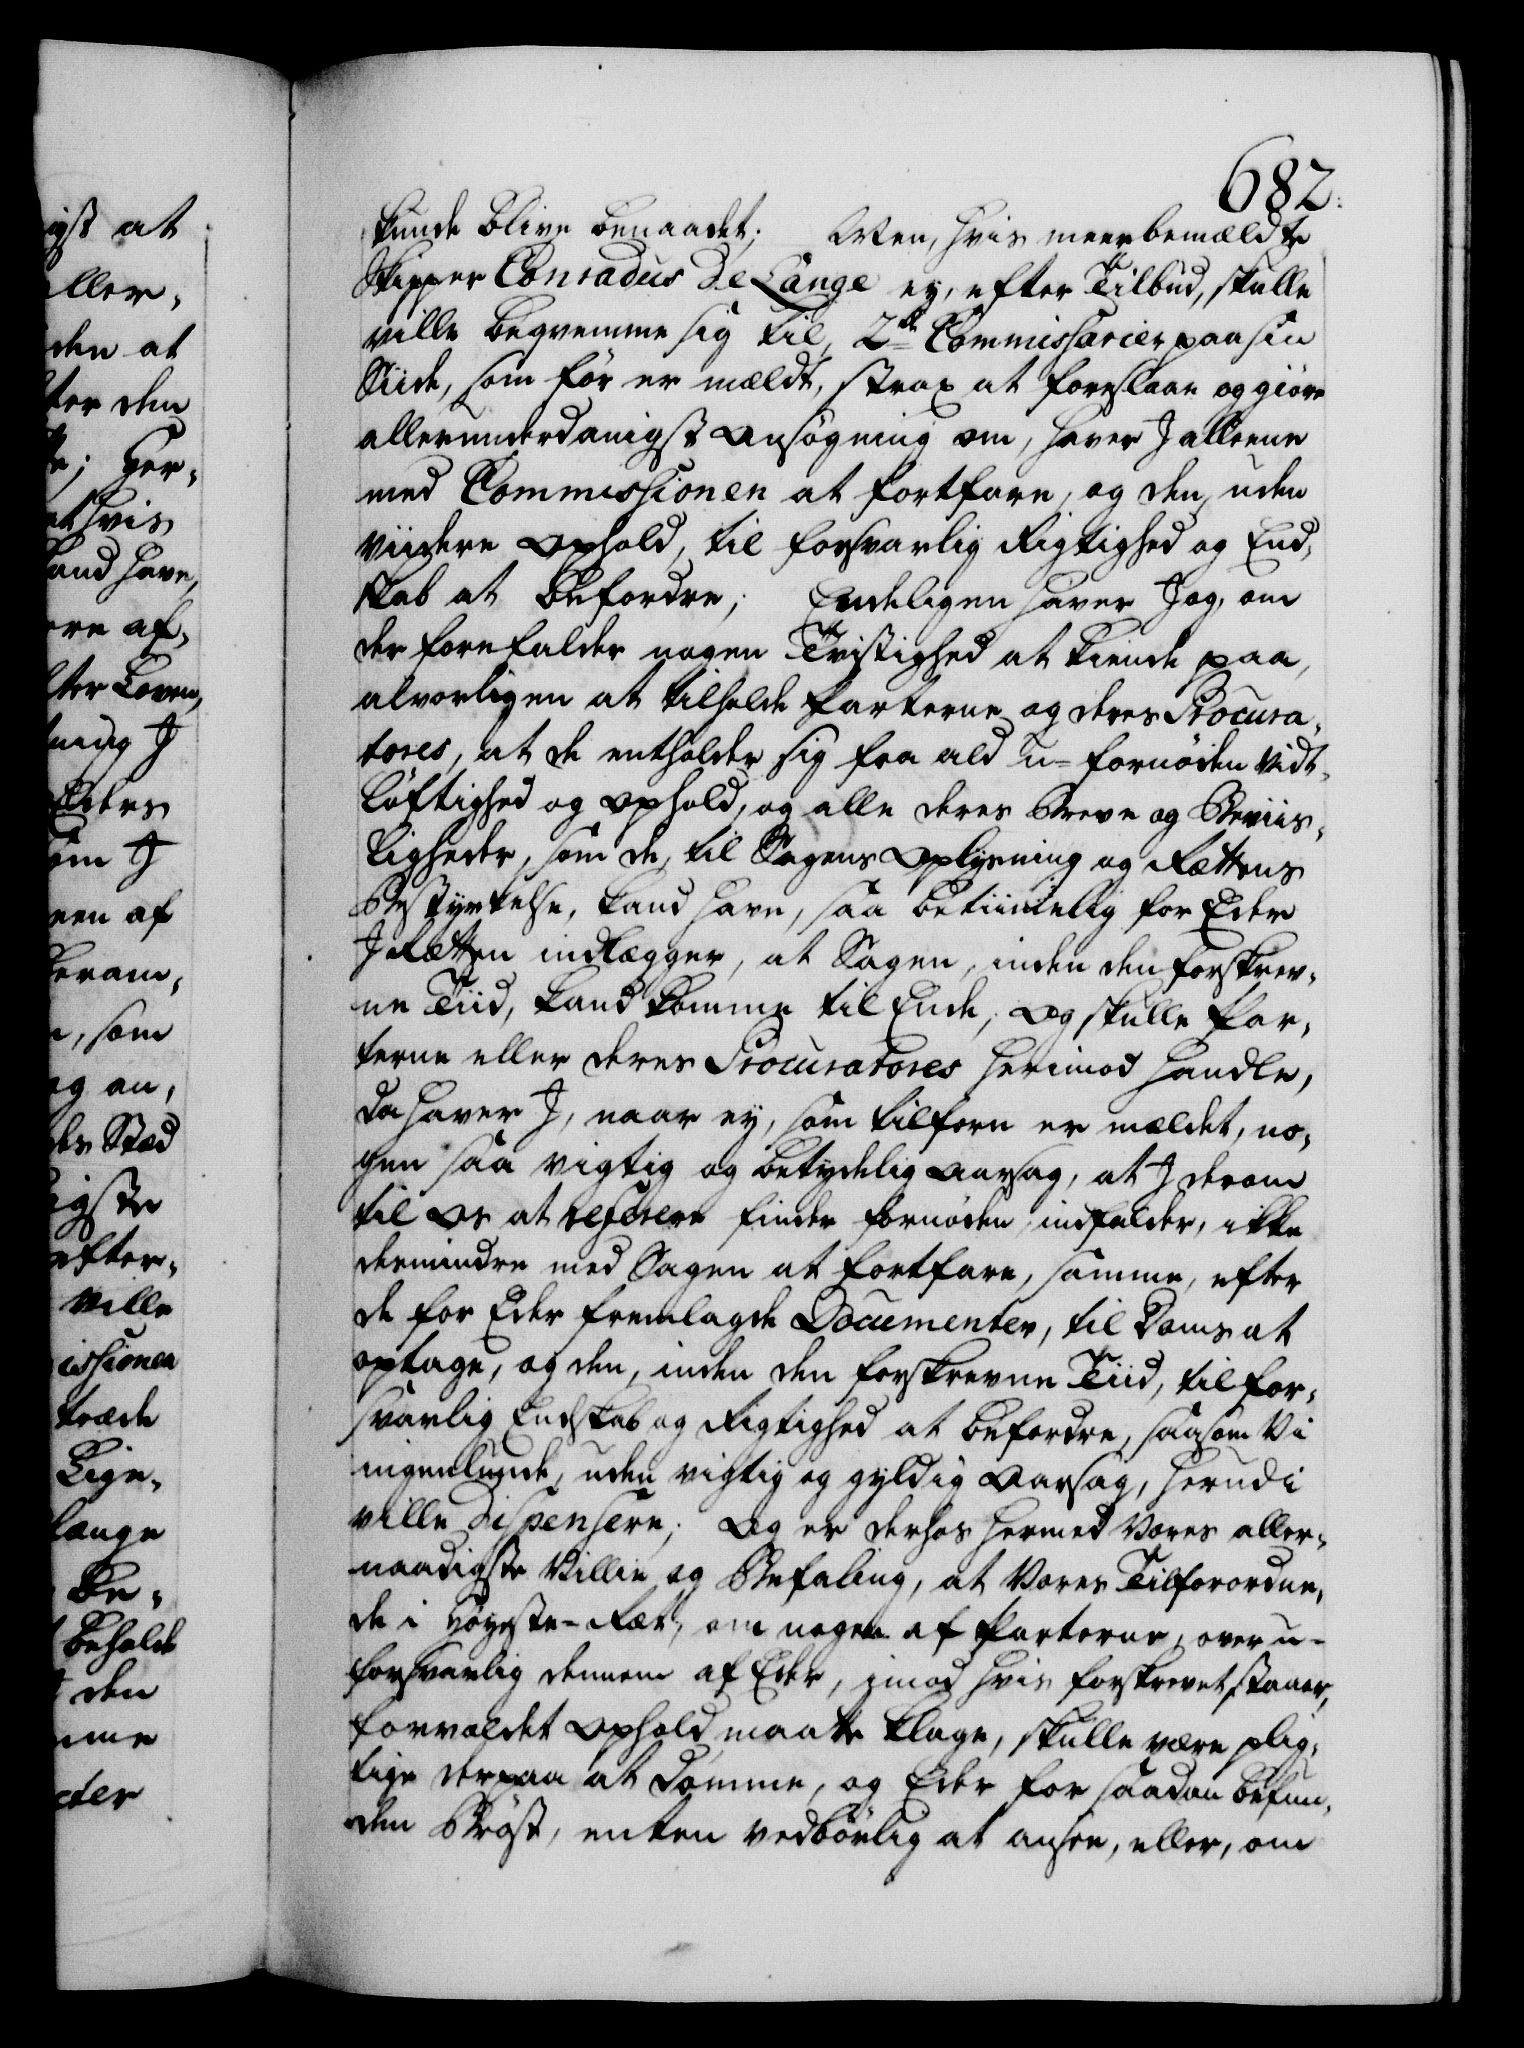 682.
kunde blive benaadet; Men, hvis meerbemældte
Skipper Conradus De Lange ey, efter Tilbud, skulle
ville beqvemme sig til, 2de Commissarier paa sin
Siide, som før er mældt, strax at foreslaae og giøre
allerunderdanigst Ansøgning om, haver I alleene
med Commissionen at fortfare, og den, uden
viidere Ophold, til forsvarlig Rigtighed og End-
skab at befordre; Endeligen haver I og, om
der forefalder nogen Tvistighed at kiende paa,
alvorligen at tilholde Parterne og deres Procura-
tores, at de entholder sig fra ald u-fornøden Vidt-
løftighed og Ophold, og alle deres Breve og Beviis-
ligheder, som de, til Sagens Oplysning og Rettens
Bestyrkelse, kand have, saa betiimelig for Eder
I Retten indlægger, at Sagen, inden den forskrev-
ne Tiid, kand komme til Ende; Og skulle Par-
terne eller deres Procuratores herimod handle,
da haver I, naar ey, som tilforn er mældet, no-
gen saa vigtig og betydelig Aarsag, at I derom
til Os at referere finder fornøden, indfalder, ikke
dermindre med Sagen at fortfare, samme, efter
de for Eder fremlagde Documenter, til Doms at
optage, og den, inden den forskrevne Tiid, til for-
svarlig Endskab og Rigtighed at befordre, saasom Vi
ingenlunde, uden vigtig og gyldig Aarsag, herudi
ville dispensere; Og er derhos hermed Vores aller-
naadigste Villie og Befaling, at Vores Tilforordne-
de i Høyeste-Ret, om nogen af Parterne, over u-
forsvarlig dennem af Eder, imod hvis forskrevet staaer,
forvoldet Ophold maatte klage, skulle være plig-
tige derpaa at dømme, og Eder for saadan befun-
den Brøst, enten vedbørlig at ansee, eller, om